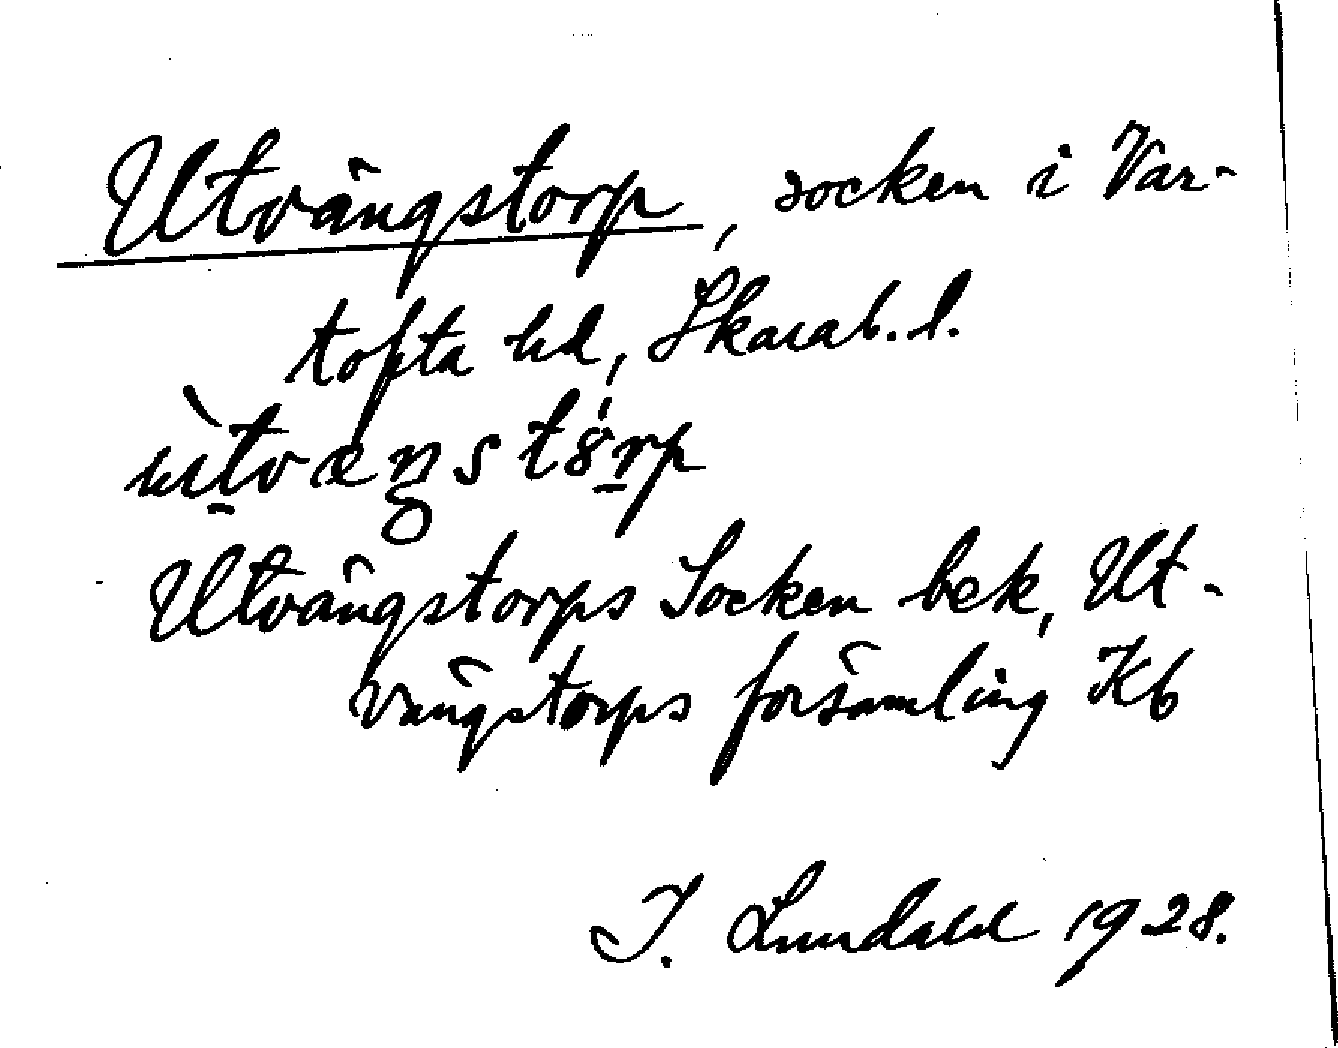 Utvängstorp, socken i Var-
tofta hd, Skarab. l.
ùtvæŋstȯrp
Utvängstorps Socken bek, Ut-
vängstorps församling Kb
I. Lundahl 1928.